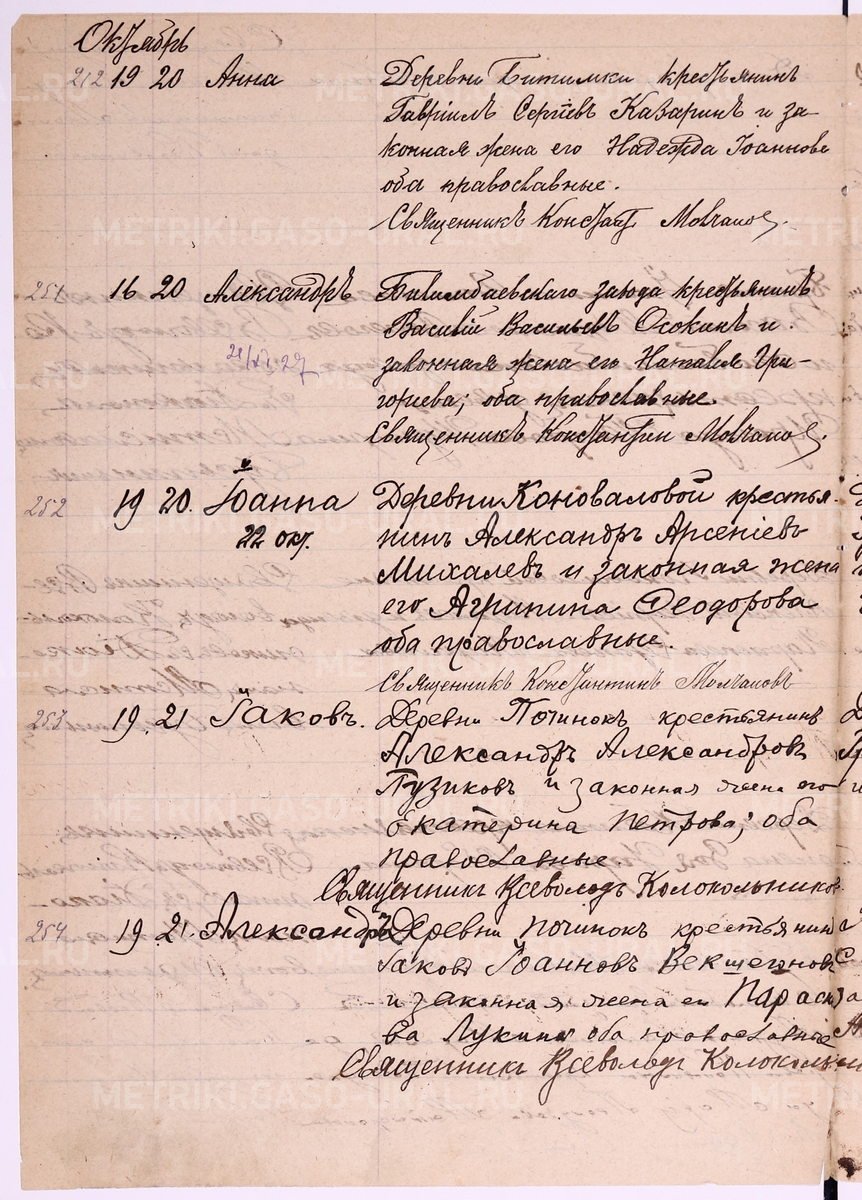 Октябрь
212 19 20 Анна Деревни Битимки крестьянинъ
Гавріилъ Сергѣевъ Казаринъ и за-
конная жена его Надежда Іоаннова
оба православные.
Священникъ Констант. Молчанов.
251 16 20 Александръ Билимбаевскаго завода крестьянинъ
Василій Васильевъ Осокинъ и
законная жена его Наталья Гри-
горьева; оба православные.
Священникъ Константин Молчанов.
252 19 20. Іоанна Деревни Коноваловой крестья-
22 окт. нинъ Александръ Арсеніевъ
Михалевъ и законная жена
его Агрипина Ѳеодорова
оба православные.
Священникъ Константинъ Молчановъ
253 19. 21 Іаковъ. Деревни Починокъ крестьянинъ
Александръ Александровъ
Пузиковъ и законная жена его
Екатерина Петрова; оба
православные
Священникъ Всеволодъ Колокольников
254 19. 21. Александръ Деревни Починокъ крестьянин
Іаковъ Іоанновъ Векшегоновъ
и законная жена ег Параск
ва Лукина оба православные
Священникъ Всеволодъ Колоколь
METRIKI.GASO-URAL.RU